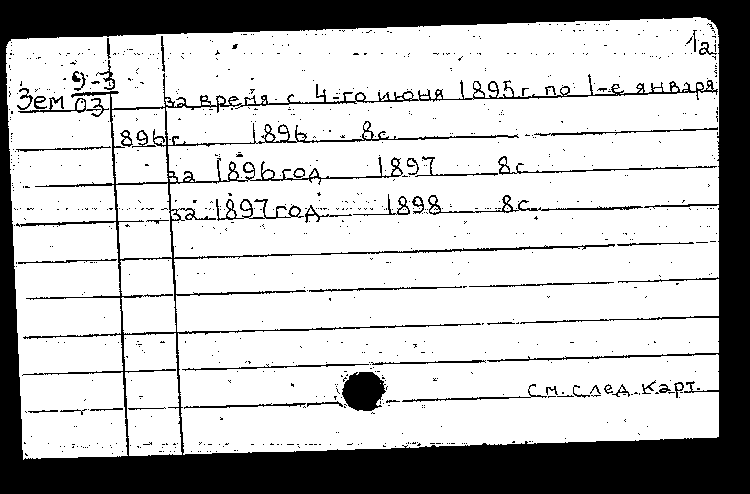 1а
Зем 9-3/03 за время с 4-го июня 1895г. по 1-е января
896г. 1896 8с.
за 1896год 1897 8с.
за 1897год 1898 8с.
см. след. карт.